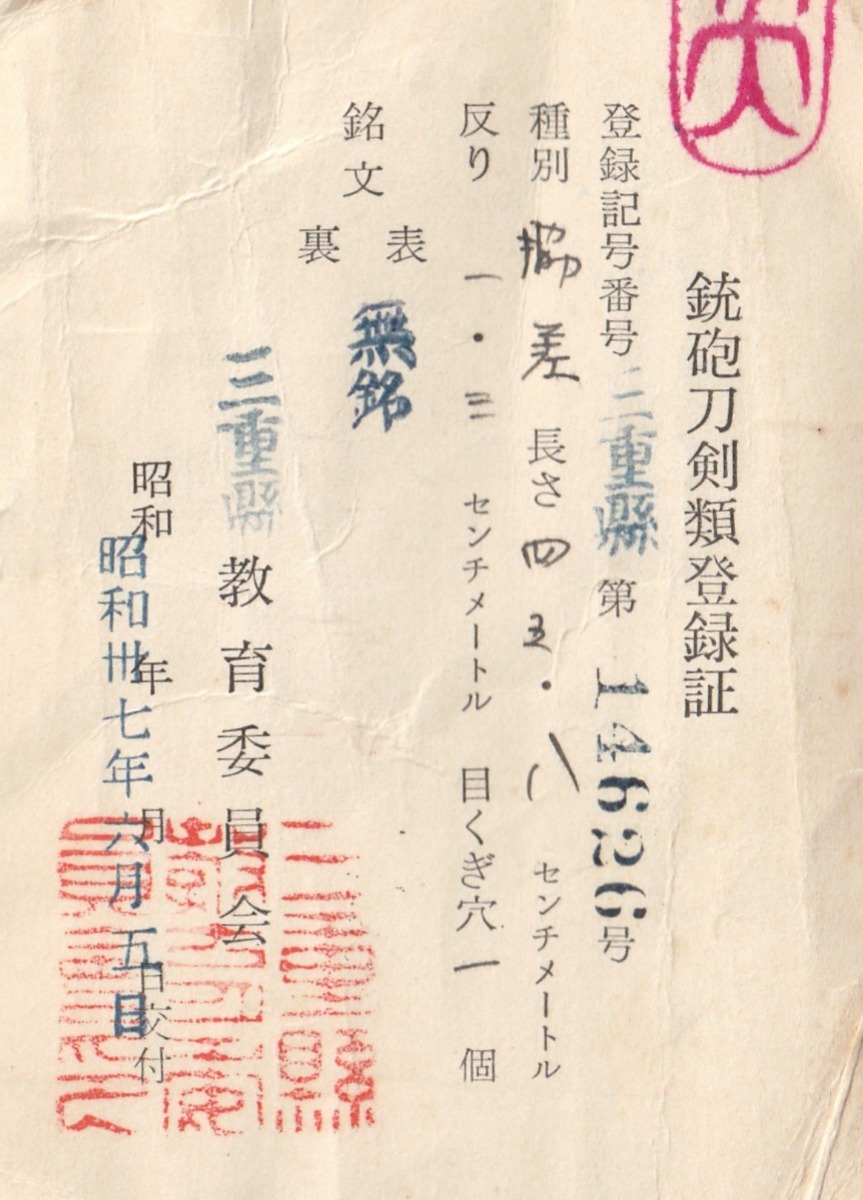 銃砲刀剣類登録証
登録記号番号 三重縣 第 14626号
種別 脇差 長さ 四五・八 センチメートル
反り 一・三 センチメートル 目くぎ穴 一 個
銘文
表
裏
無銘
三重縣教育委員会
昭和 年 月 日交付
昭和卅七年六月五日